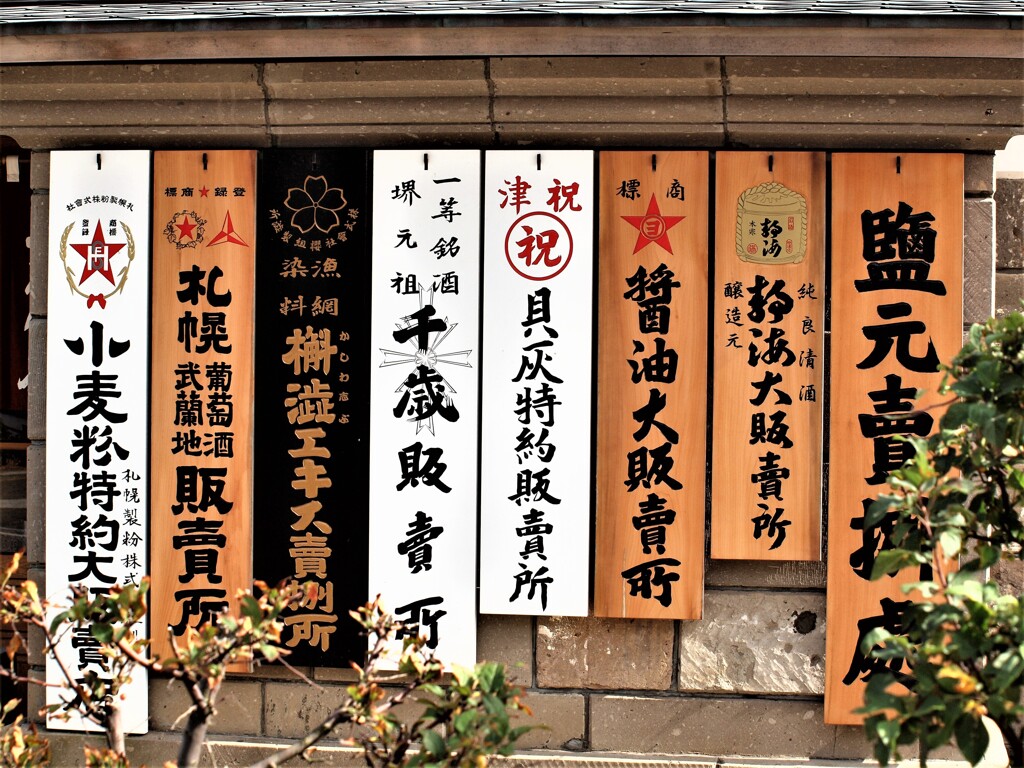 鹽元賣捌處
静海
純良清酒
静海大販賣所
醸造元
商標
醤油大販賣所
祝津
祝
貝灰特約販賣所
一等銘酒
堺元祖
千歳販賣所
漁網
染料
かしわ志ぶ
槲澁エキス賣捌所
登録★商標
札幌
葡萄酒
武蘭地
販賣所
札幌製粉株式會社
商標
登録
小麦粉特約大販賣店
札幌製粉株式